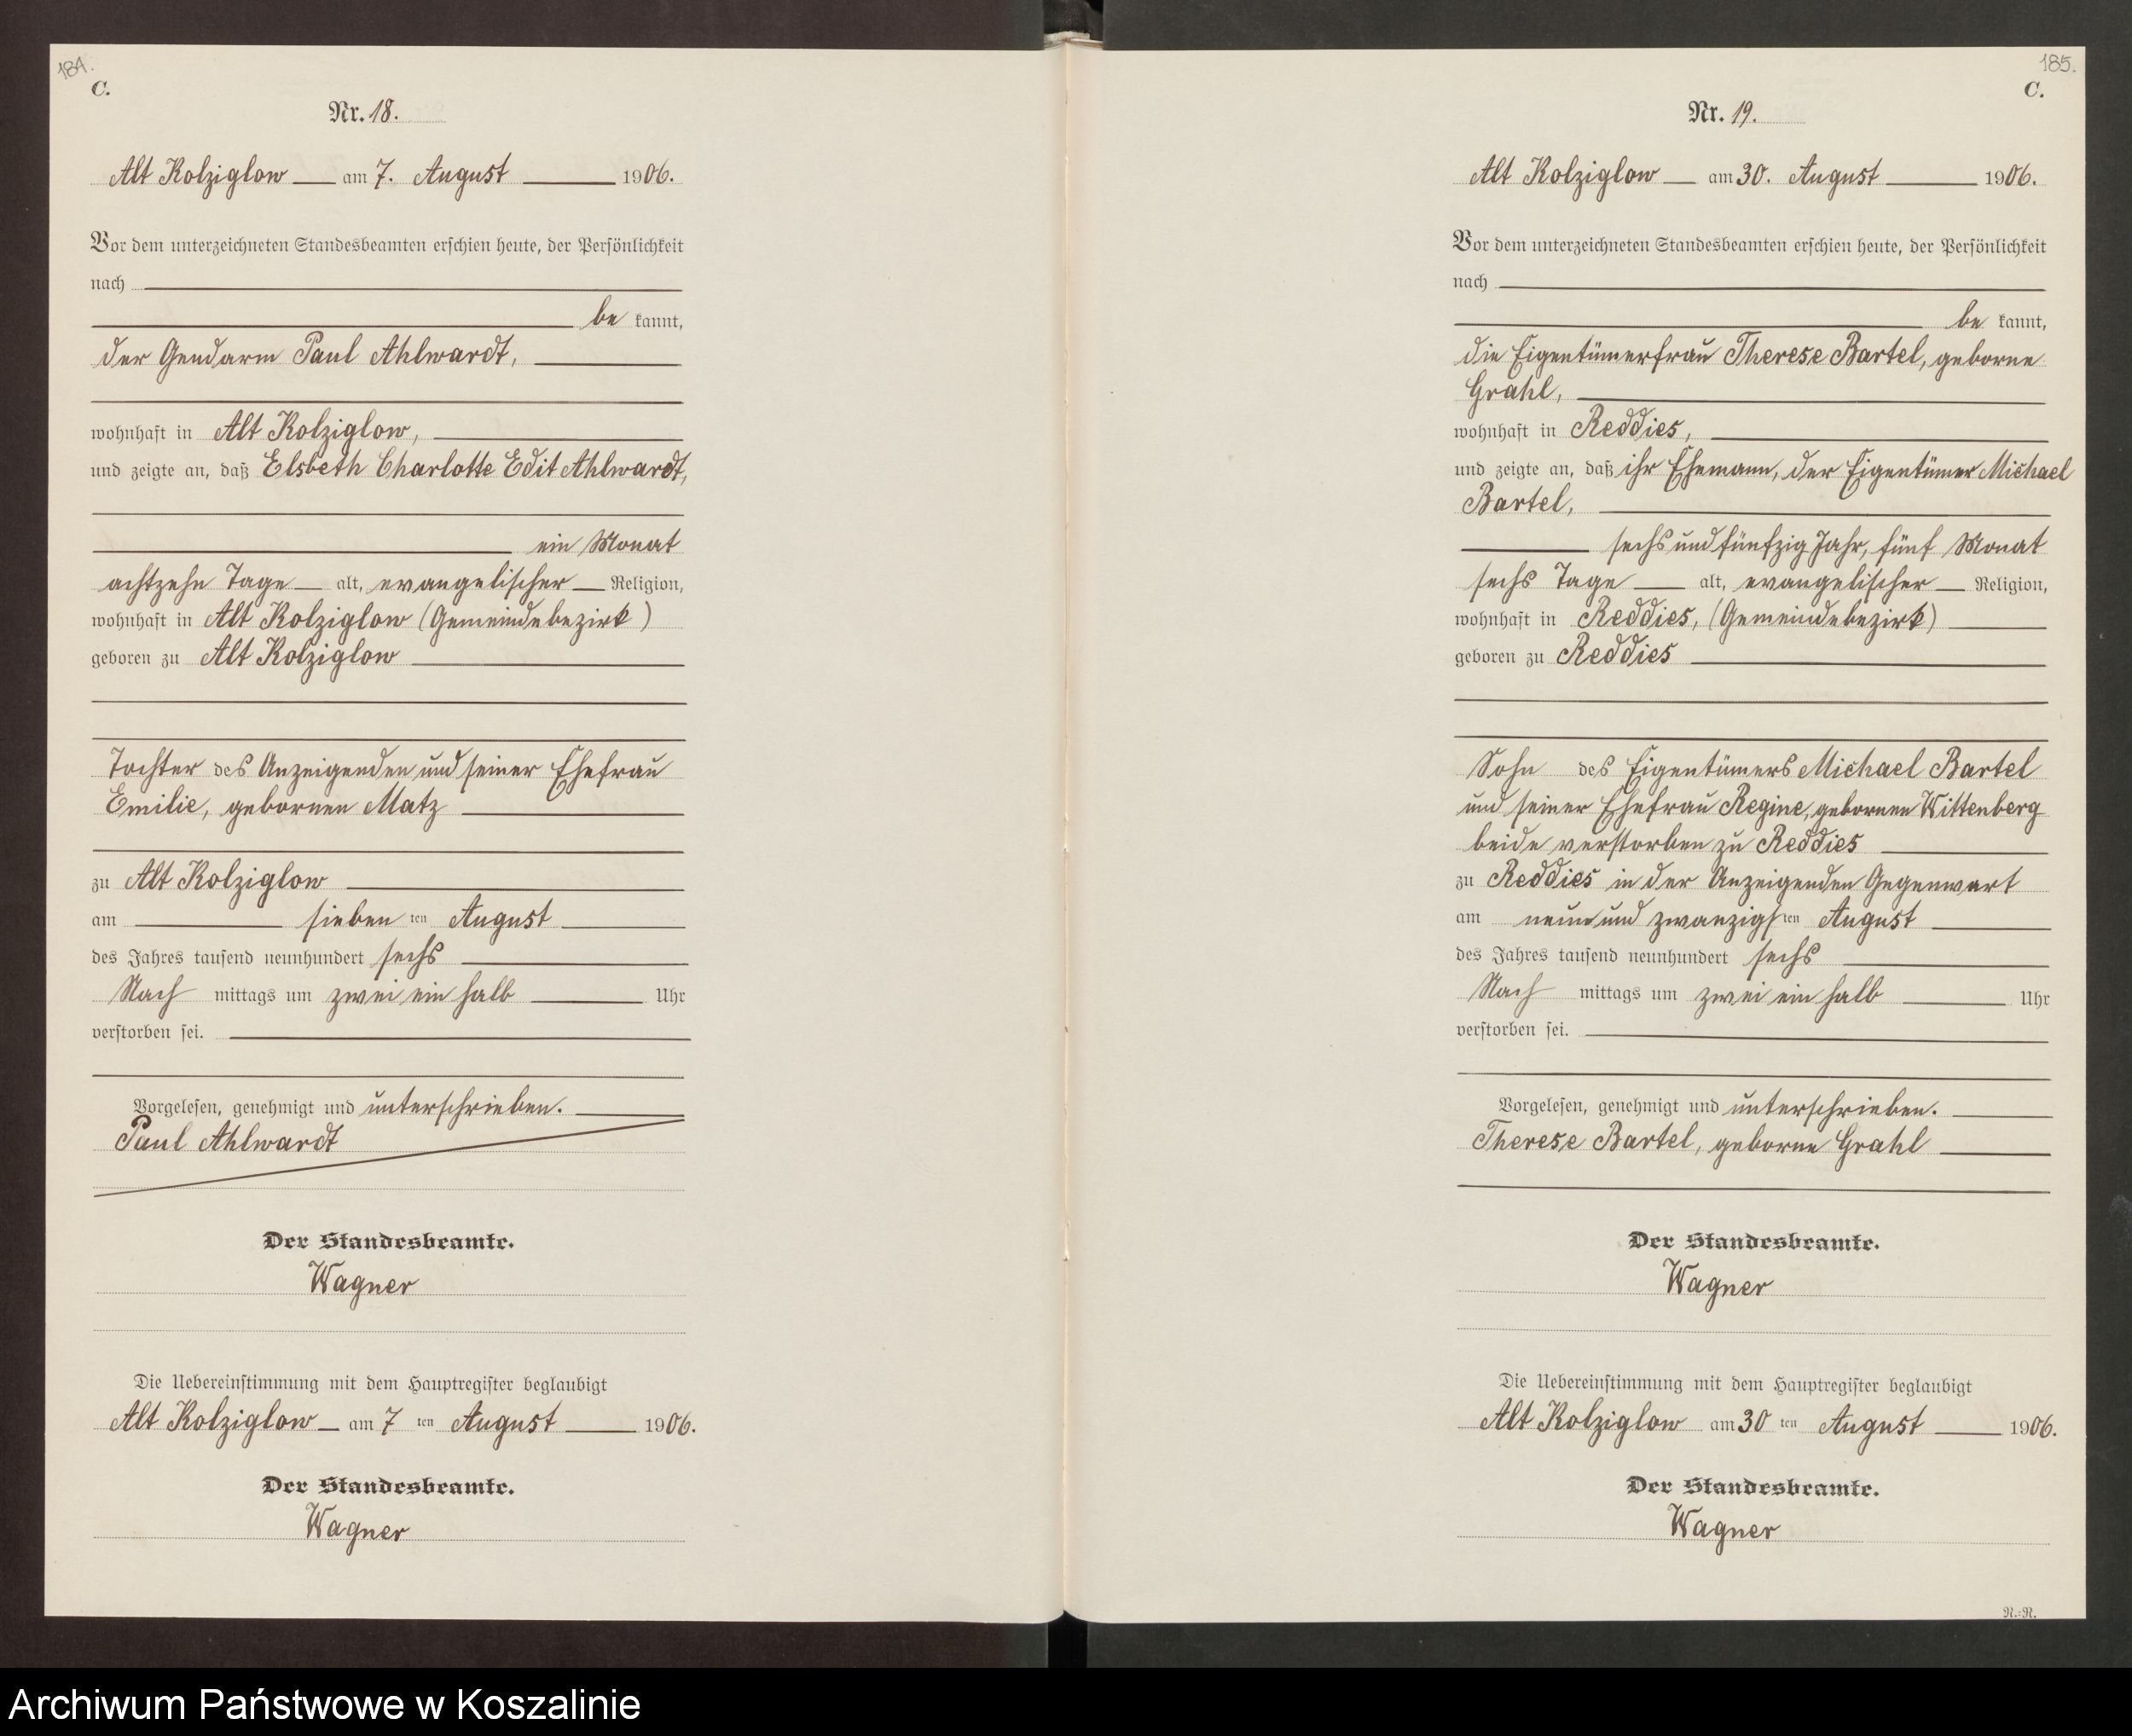 184.
C.
Nr. 18.
Alt Kolziglow am 7. August 1906.
Vor dem unterzeichneten Standesbeamten erschien heute, der Persönlichkeit
nach
be kannt,
der Gendarm Paul Ahlwardt,
wohnhaft in Alt Kolziglow,
und zeigte an, daß Elsbeth Charlotte Edit Ahlwardt,
ein Monat
achtzehn Tage alt, evangelischer Religion,
wohnhaft in Alt Kolziglow (Gemeindebezirk)
geboren zu Alt Kolziglow
Tochter des Anzeigenden und seiner Ehefrau
Emilie, gebornen Matz
zu Alt Kolziglow
am sieben ten August
des Jahres tausend neunhundert sechs
Nach mittags um zwei ein halb Uhr
verstorben sei.
Vorgelesen, genehmigt und unterschrieben.
Paul Ahlwardt
Der Standesbeamte.
Wagner
Die Uebereinstimmung mit dem Hauptregister beglaubigt
Alt Kolziglow am 7 ten August 1906.
Der Standesbeamte.
Wagner
185.
C.
Nr. 19.
Alt Kolziglow am 30. August 1906.
Vor dem unterzeichneten Standesbeamten erschien heute, der Persönlichkeit
nach
be kannt,
die Eigentümerfrau Therese Bartel, geborne
Grahl,
wohnhaft in Reddies,
und zeigte an, daß ihr Ehemann, der Eigentümer Michael
Bartel,
sechs und fünfzig Jahr, fünf Monat
sechs Tage alt, evangelischer Religion,
wohnhaft in Reddies, (Gemeindebezirk)
geboren zu Reddies
Sohn des Eigentümers Michael Bartel
und seiner Ehefrau Regine, gebornen Wittenberg
beide verstorben zu Reddies
zu Reddies in der Anzeigenden Gegenwart
am neun und zwanzigs ten August
des Jahres tausend neunhundert sechs
Nach mittags um zwei ein halb Uhr
verstorben sei.
Vorgelesen, genehmigt und unterschrieben.
Therese Bartel, geborne Grahl
Der Standesbeamte.
Wagner
Die Uebereinstimmung mit dem Hauptregister beglaubigt
Alt Kolziglow am 30 ten August 1906.
Der Standesbeamte.
Wagner
N.-N.
Archiwum Państwowe w Koszalinie